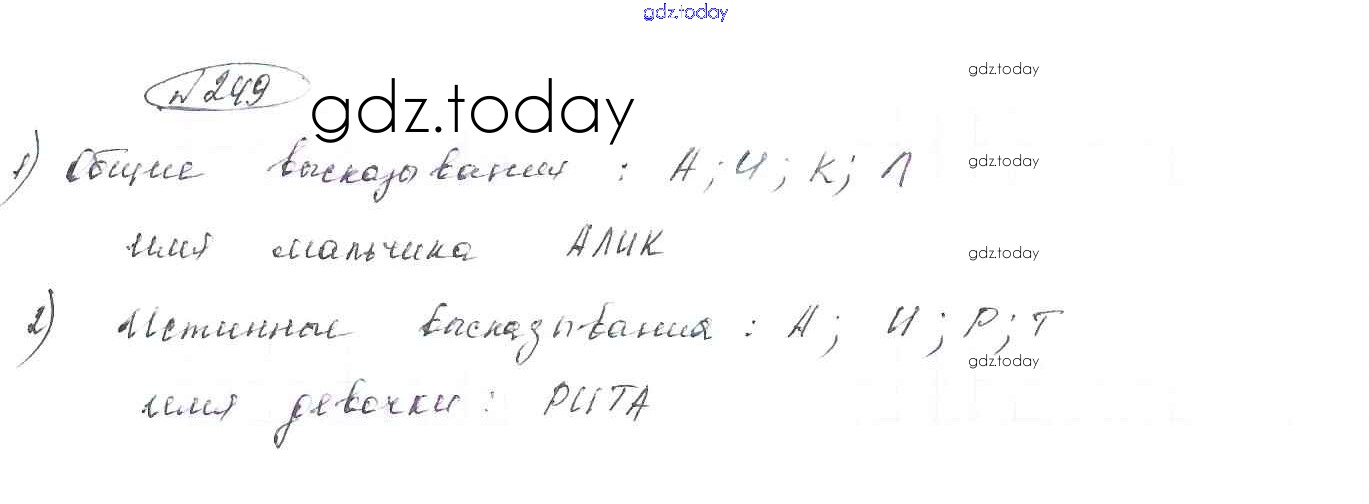 gdz.today
№ 249
gdz.today
gdz.today
1) Общие высказывания : А; И; К; Л
gdz.today
имя мальчика АЛИК
gdz.today
2) Истинные высказывания : А; И; Р; Т
gdz.today
имя девочки : РИТА